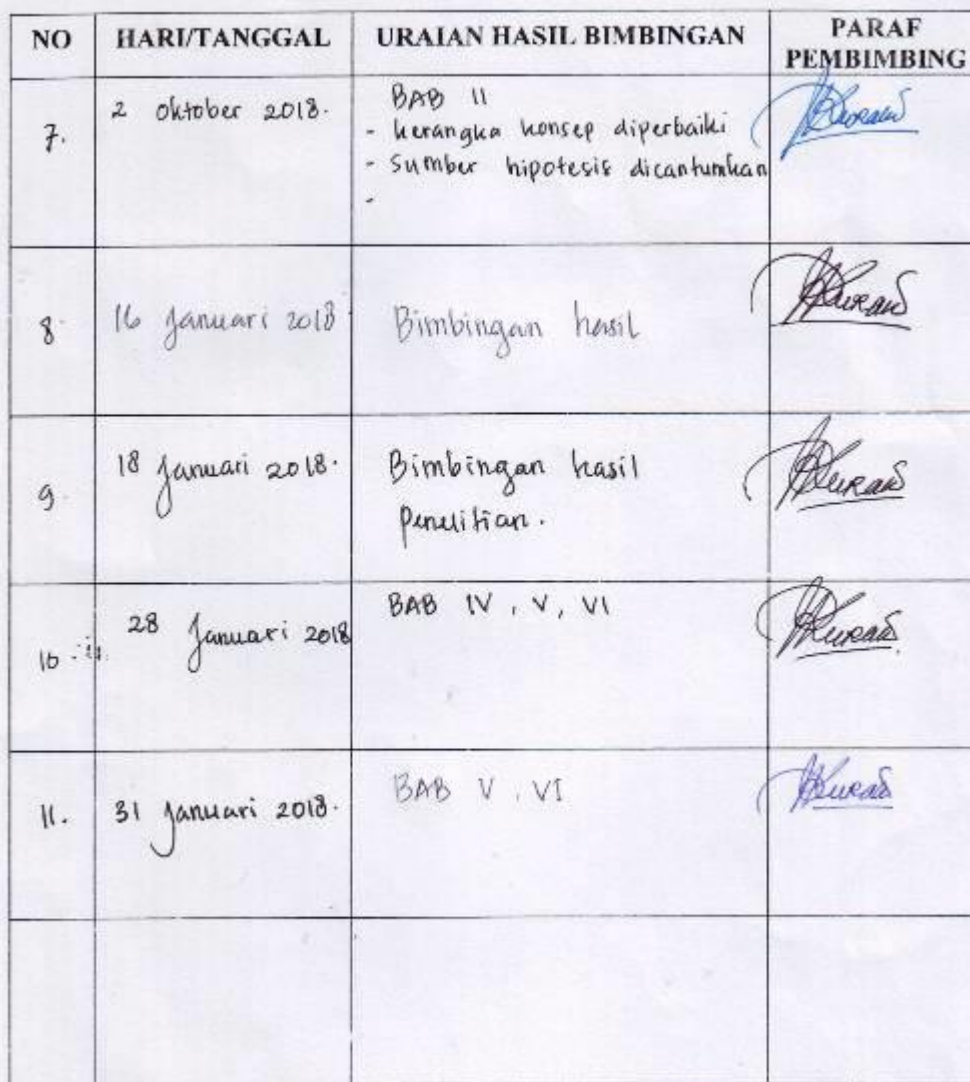 NO HARI/TANGGAL URAIAN HASIL BIMBINGAN PARAF PEMBIMBING
7. 2 Oktober 2018. BAB II
- kerangka konsep diperbaiki
- Sumber hipotesis dicantumkan
-
8 16 Januari 2018 Bimbingan hasil
9. 18 Januari 2018. Bimbingan hasil
Penelitian.
10. 28 Januari 2018 BAB IV, V, VI
11. 31 Januari 2018. BAB V, VI